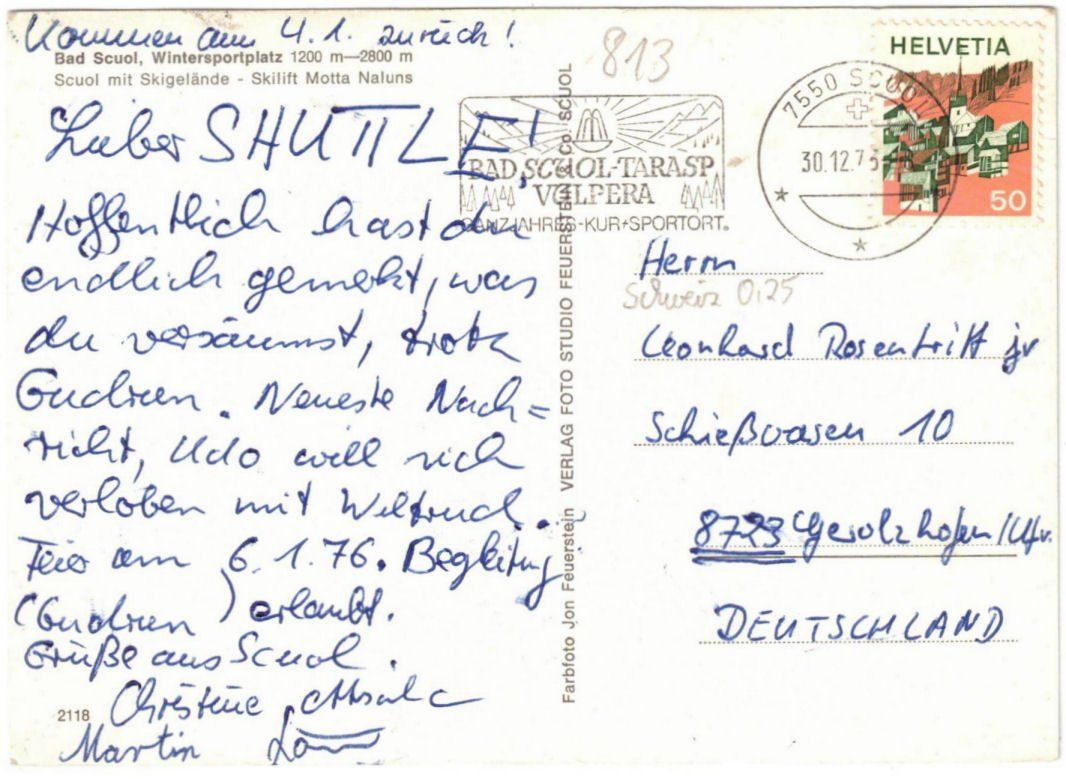 Kommen am 4.1. zurück!
Bad Scuol, Wintersportplatz 1200 m—2800 m
Scuol mit Skigelände - Skilift Motta Naluns
Lieber SHUTTLE!
Hoffentlich hast du
endlich gemerkt, was
du versäumst, trotz
Gudrun. Neueste Nach=
richt, Udo will sich
verloben mit Weltrud.
Feier am 6.1.76. Begleitung
(Gudrun) erlaubt.
Grüße aus Scuol.
Christine,
Martin
2118
Farbfoto Jon Feuerstein VERLAG FOTO STUDIO FEUERSTEIN & Co. SCUOL
813
BAD SCUOL-TARASP
VULPERA
GANZJAHRES-KUR+SPORTORT.
7550 SCUOL
30.12.75
HELVETIA
50
Herrn
Schweiz 0,25
Leonhard Rosentritt jr
Schießwasen 10
8723 Gerolzhofen/Ufr.
DEUTSCHLAND